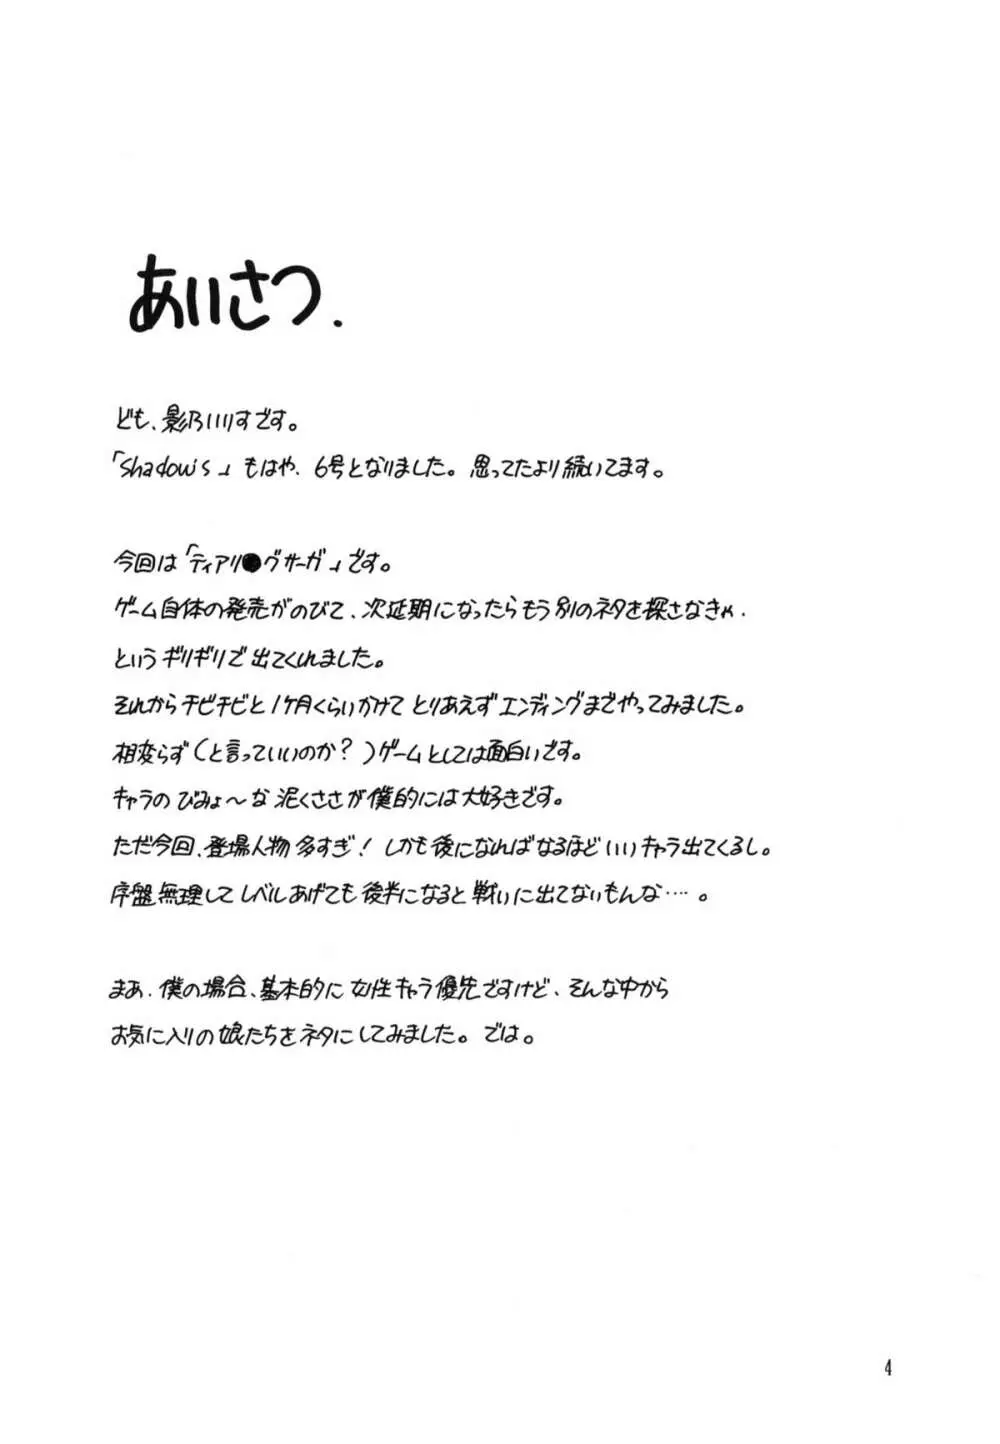 あいさつ.
ども、影乃いりすです。
「Shadow's」もはや、6号となりました。思ってたより続いてます。
今回は「ティアリ●グサーガ」です。
ゲーム自体の発売がのびて、次延期になったらもう別のネタを探さなきゃ、
というギリギリで出てくれました。
それからチビチビと1ヶ月くらいかけてとりあえずエンディングまでやってみました。
相変らず(と言っていいのか?)ゲームとしては面白いです。
キャラのびみょ〜な泥くささが僕的には大好きです。
ただ今回、登場人物多すぎ!しかも後になればなるほどいいキャラ出てくるし。
序盤無理してレベルあげても後半になると戦いに出てないもんな‥‥。
まあ、僕の場合、基本的に女性キャラ優先ですけど、そんな中から
お気に入りの娘たちをネタにしてみました。では。
4